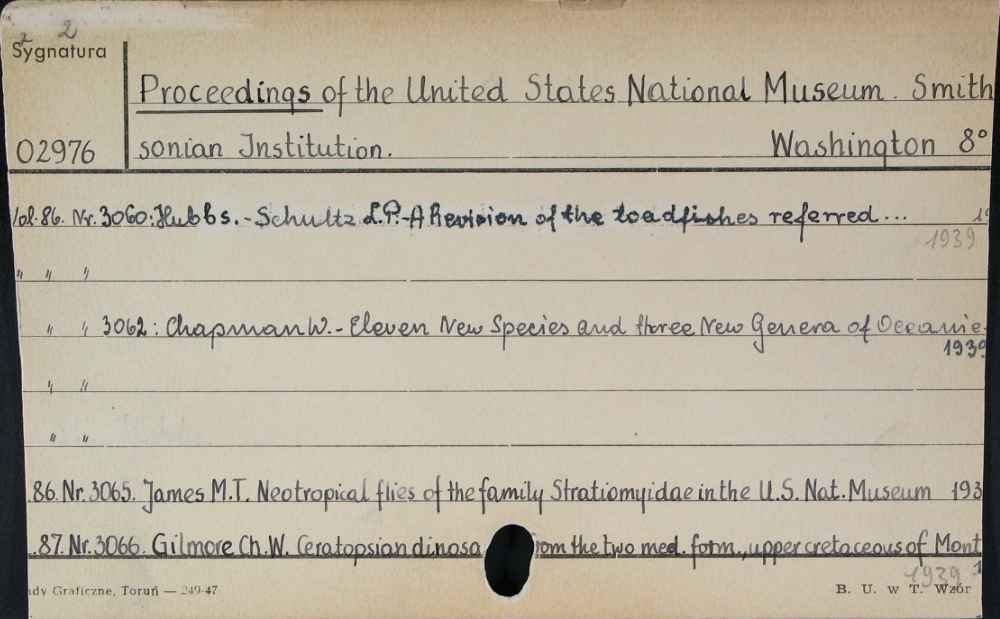 2 2
Sygnatura
Proceedings of the United States National Museum. Smith
02976 sonian Institution. Washington 8°
Vol. 86. Nr. 3060: Hubbs. - Schultz L.P. - A Revision of the toadfishes referred... 19
1939
" " "
" " 3062: Chapman W. - Eleven New Species and three New Genera of Oceanic
1939
" "
" "
.86. Nr. 3065. James M.T. Neotropical flies of the family Stratiomyidae in the U.S. Nat. Museum 193
.87. Nr. 3066. Gilmore Ch. W. Ceratopsian dinosa om the two med. form., upper cretaceous of Mont
1939 1
ady Graficzne, Toruń — 249-47 B. U. w T. Wzór